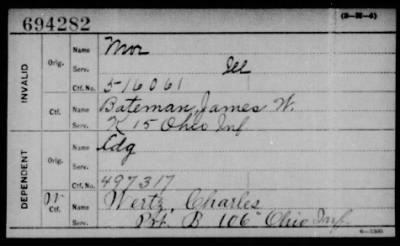 694282
(3-M-6)
INVALID
Orig.
Name
Mor
Serv.
Ill
Ctf. No.
516061
Ctf.
Name
Bateman, James W.
Serv.
K 15 Ohio Inf
DEPENDENT
Orig.
Name
Cdg
Serv.
Ctf. No.
497317
Ctf.
Name
Wertz, Charles
Serv.
Pvt. B 106" Ohio Inf.